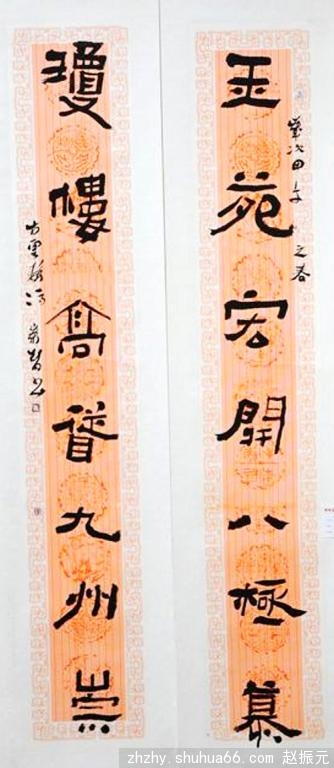 玉苑宏開八極慕
歲次甲午之春
瓊樓高聳九州崇
zhzhy.shuhua66.com 赵振元